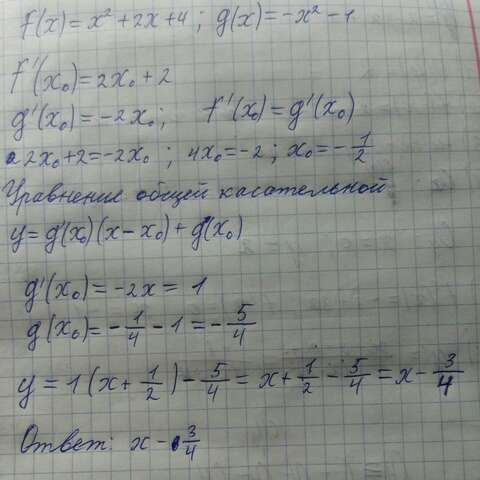 f(x)=x²+2x+4; g(x)=-x²-1
f'(x₀)=2x₀+2
g'(x₀)=-2x₀; f'(x₀)=g'(x₀)
2x₀+2=-2x₀; 4x₀=-2; x₀=-1/2
Уравнение общей касательной
y=g'(x₀)(x-x₀)+g(x₀)
g'(x₀)=-2x=1
g(x₀)=-1/4-1=-5/4
y=1(x+1/2)-5/4=x+1/2-5/4=x-3/4
Ответ: x-3/4